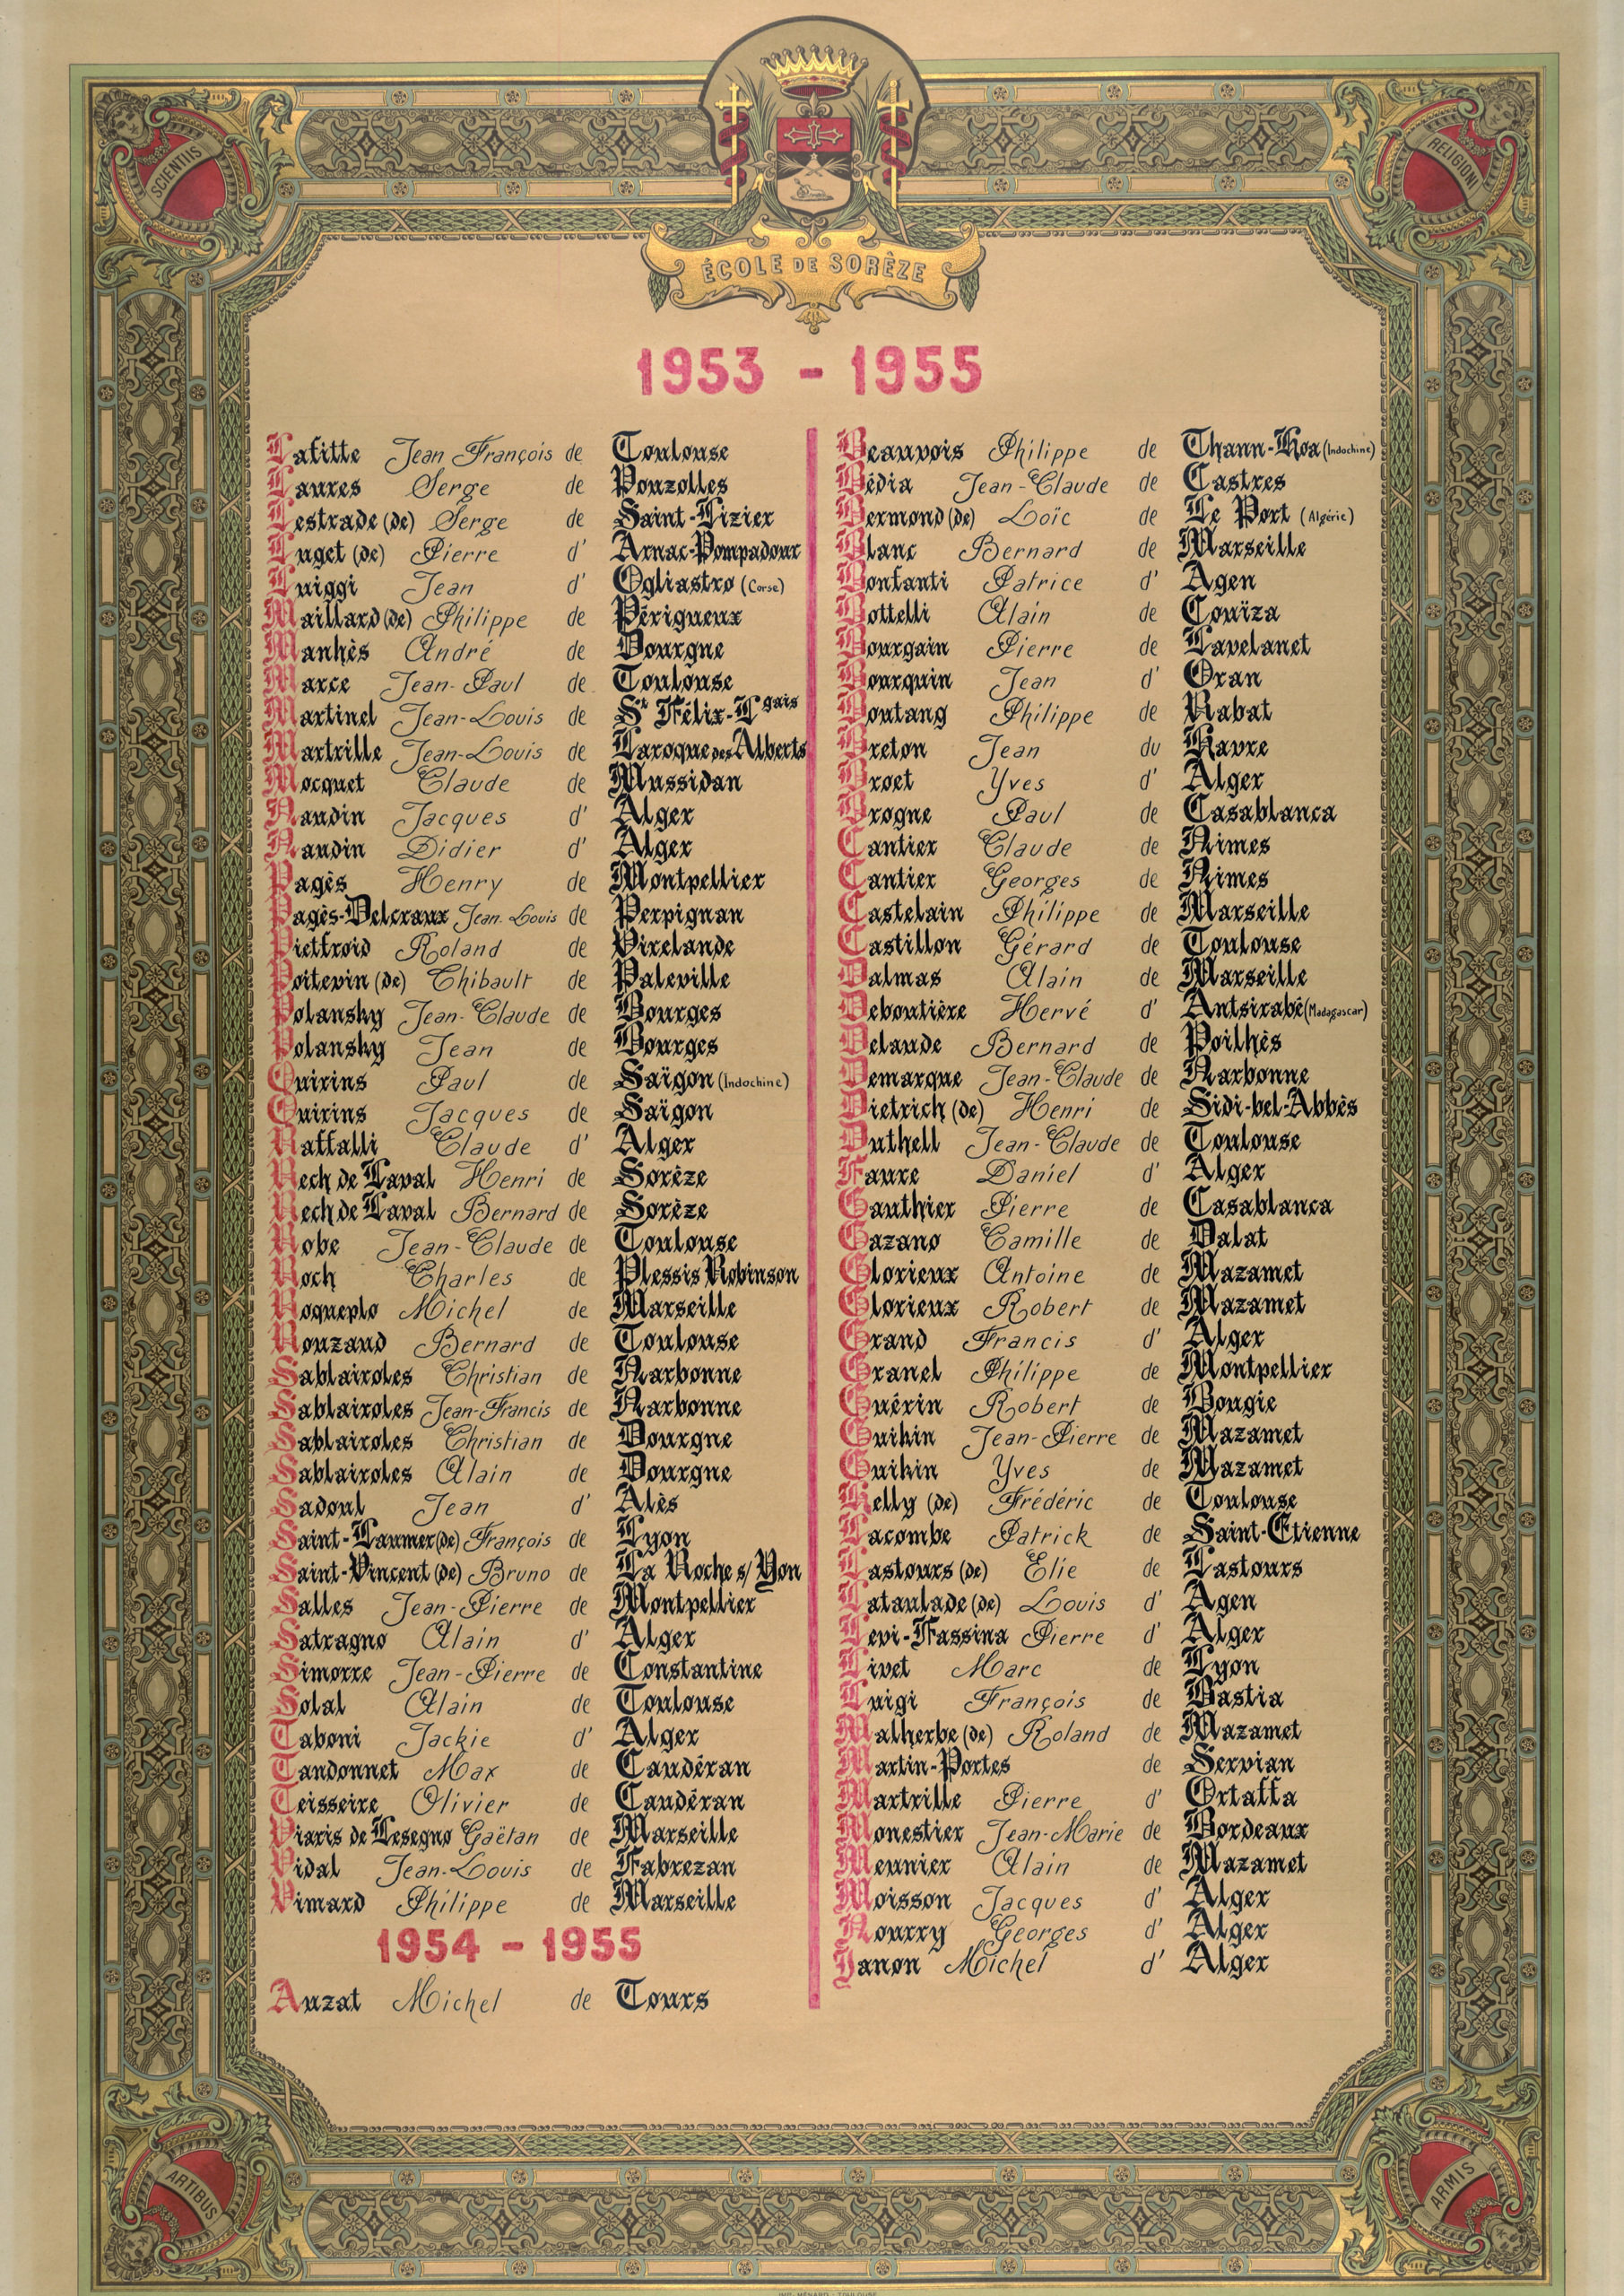 SCIENTIIS
RELIGIONI
ÉCOLE DE SORÈZE
1953 - 1955
Lafitte Jean François de Toulouse
Laures Serge de Pouzolles
Lestrade (de) Serge de Saint-Lizier
Luget (de) Pierre d' Arnac-Pompadour
Luiggi Jean d' Ogliastro (Corse)
Maillard (de) Philippe de Périgueux
Manhès André de Dourgne
Marce Jean-Paul de Toulouse
Martinel Jean-Louis de St Félix-Lgais
Martrille Jean-Louis de Laroque des Alberts
Mocquet Claude de Mussidan
Naudin Jacques d' Alger
Naudin Didier d' Alger
Pagès Henry de Montpellier
Pagès-Delcraux Jean-Louis de Perpignan
Pietfroid Roland de Virelande
Poitevin (de) Thibault de Paleville
Polansky Jean-Claude de Bourges
Polansky Jean de Bourges
Quirins Paul de Saïgon (Indochine)
Quirins Jacques de Saïgon
Raffalli Claude d' Alger
Rech de Laval Henri de Sorèze
Rech de Laval Bernard de Sorèze
Robe Jean-Claude de Toulouse
Roch Charles de Plessis Robinson
Roqueplo Michel de Marseille
Rouzaud Bernard de Toulouse
Sablairoles Christian de Narbonne
Sablairoles Jean-Francis de Narbonne
Sablairoles Christian de Dourgne
Sablairoles Alain de Dourgne
Sadoul Jean d' Alès
Saint-Laumer (de) François de Lyon
Saint-Vincent (de) Bruno de La Roche s/ Yon
Salles Jean-Pierre de Montpellier
Satragno Alain d' Alger
Simorre Jean-Pierre de Constantine
Solal Alain de Toulouse
Taboni Jackie d' Alger
Tandonnet Max de Caudéran
Teisseire Olivier de Caudéran
Viaris de Lesegno Gaëtan de Marseille
Vidal Jean-Louis de Fabrezan
Vimard Philippe de Marseille
1954 - 1955
Auzat Michel de Tours
Beauvois Philippe de Thann-Hoa (Indochine)
Bédia Jean-Claude de Castres
Bermond (de) Loïc de Le Port (Algérie)
Blanc Bernard de Marseille
Bonfanti Patrice d' Agen
Bottelli Alain de Couiza
Bourgain Pierre de Lavelanet
Bourquin Jean d' Oran
Boutang Philippe de Rabat
Breton Jean du Havre
Broet Yves d' Alger
Brogne Paul de Casablanca
Cantier Claude de Nimes
Cantier Georges de Nimes
Castelain Philippe de Marseille
Castillon Gérard de Toulouse
Dalmas Alain de Marseille
Deboutière Hervé d' Antsirabé (Madagascar)
Delaude Bernard de Poilhès
Demarque Jean-Claude de Narbonne
Dietrich (de) Henri de Sidi-bel-Abbès
Duthell Jean-Claude de Toulouse
Faure Daniel d' Alger
Gauthier Pierre de Casablanca
Gazano Camille de Dalat
Glorieux Antoine de Mazamet
Glorieux Robert de Mazamet
Grand Francis d' Alger
Granel Philippe de Montpellier
Guérin Robert de Bougie
Guihin Jean-Pierre de Mazamet
Guihin Yves de Mazamet
Kelly (de) Frédéric de Toulouse
Lacombe Patrick de Saint-Etienne
Lastours (de) Elie de Lastours
Lataulade (de) Louis d' Agen
Levi-Fassina Pierre d' Alger
Livet Marc de Lyon
Luigi François de Bastia
Malherbe (de) Roland de Mazamet
Martin-Portes de Servian
Martrille Pierre d' Ortaffa
Monestier Jean-Marie de Bordeaux
Meunier Alain de Mazamet
Moisson Jacques d' Alger
Nourry Georges d' Alger
Janon Michel d' Alger
ARTIBUS
ARMIS
IMP. MÉNARD - TOULOUSE